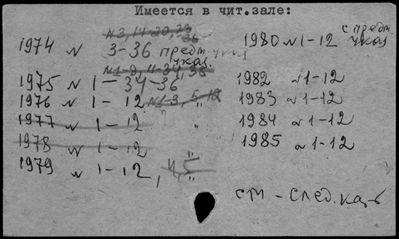 Имеется в чит.зале:
1974 N 3-36 предм. указ.
1975 N 1-34-36
1976 N 1-12 N 1-3, 5-12 "
1977 N 1-12 "
1978 N 1-12
1979 N 1-12, N 5
1980 N 1-12 с предм. указ.
1982 N 1-12
1983 N 1-12
1984 N 1-12
1985 N 1-12
см - след. кар